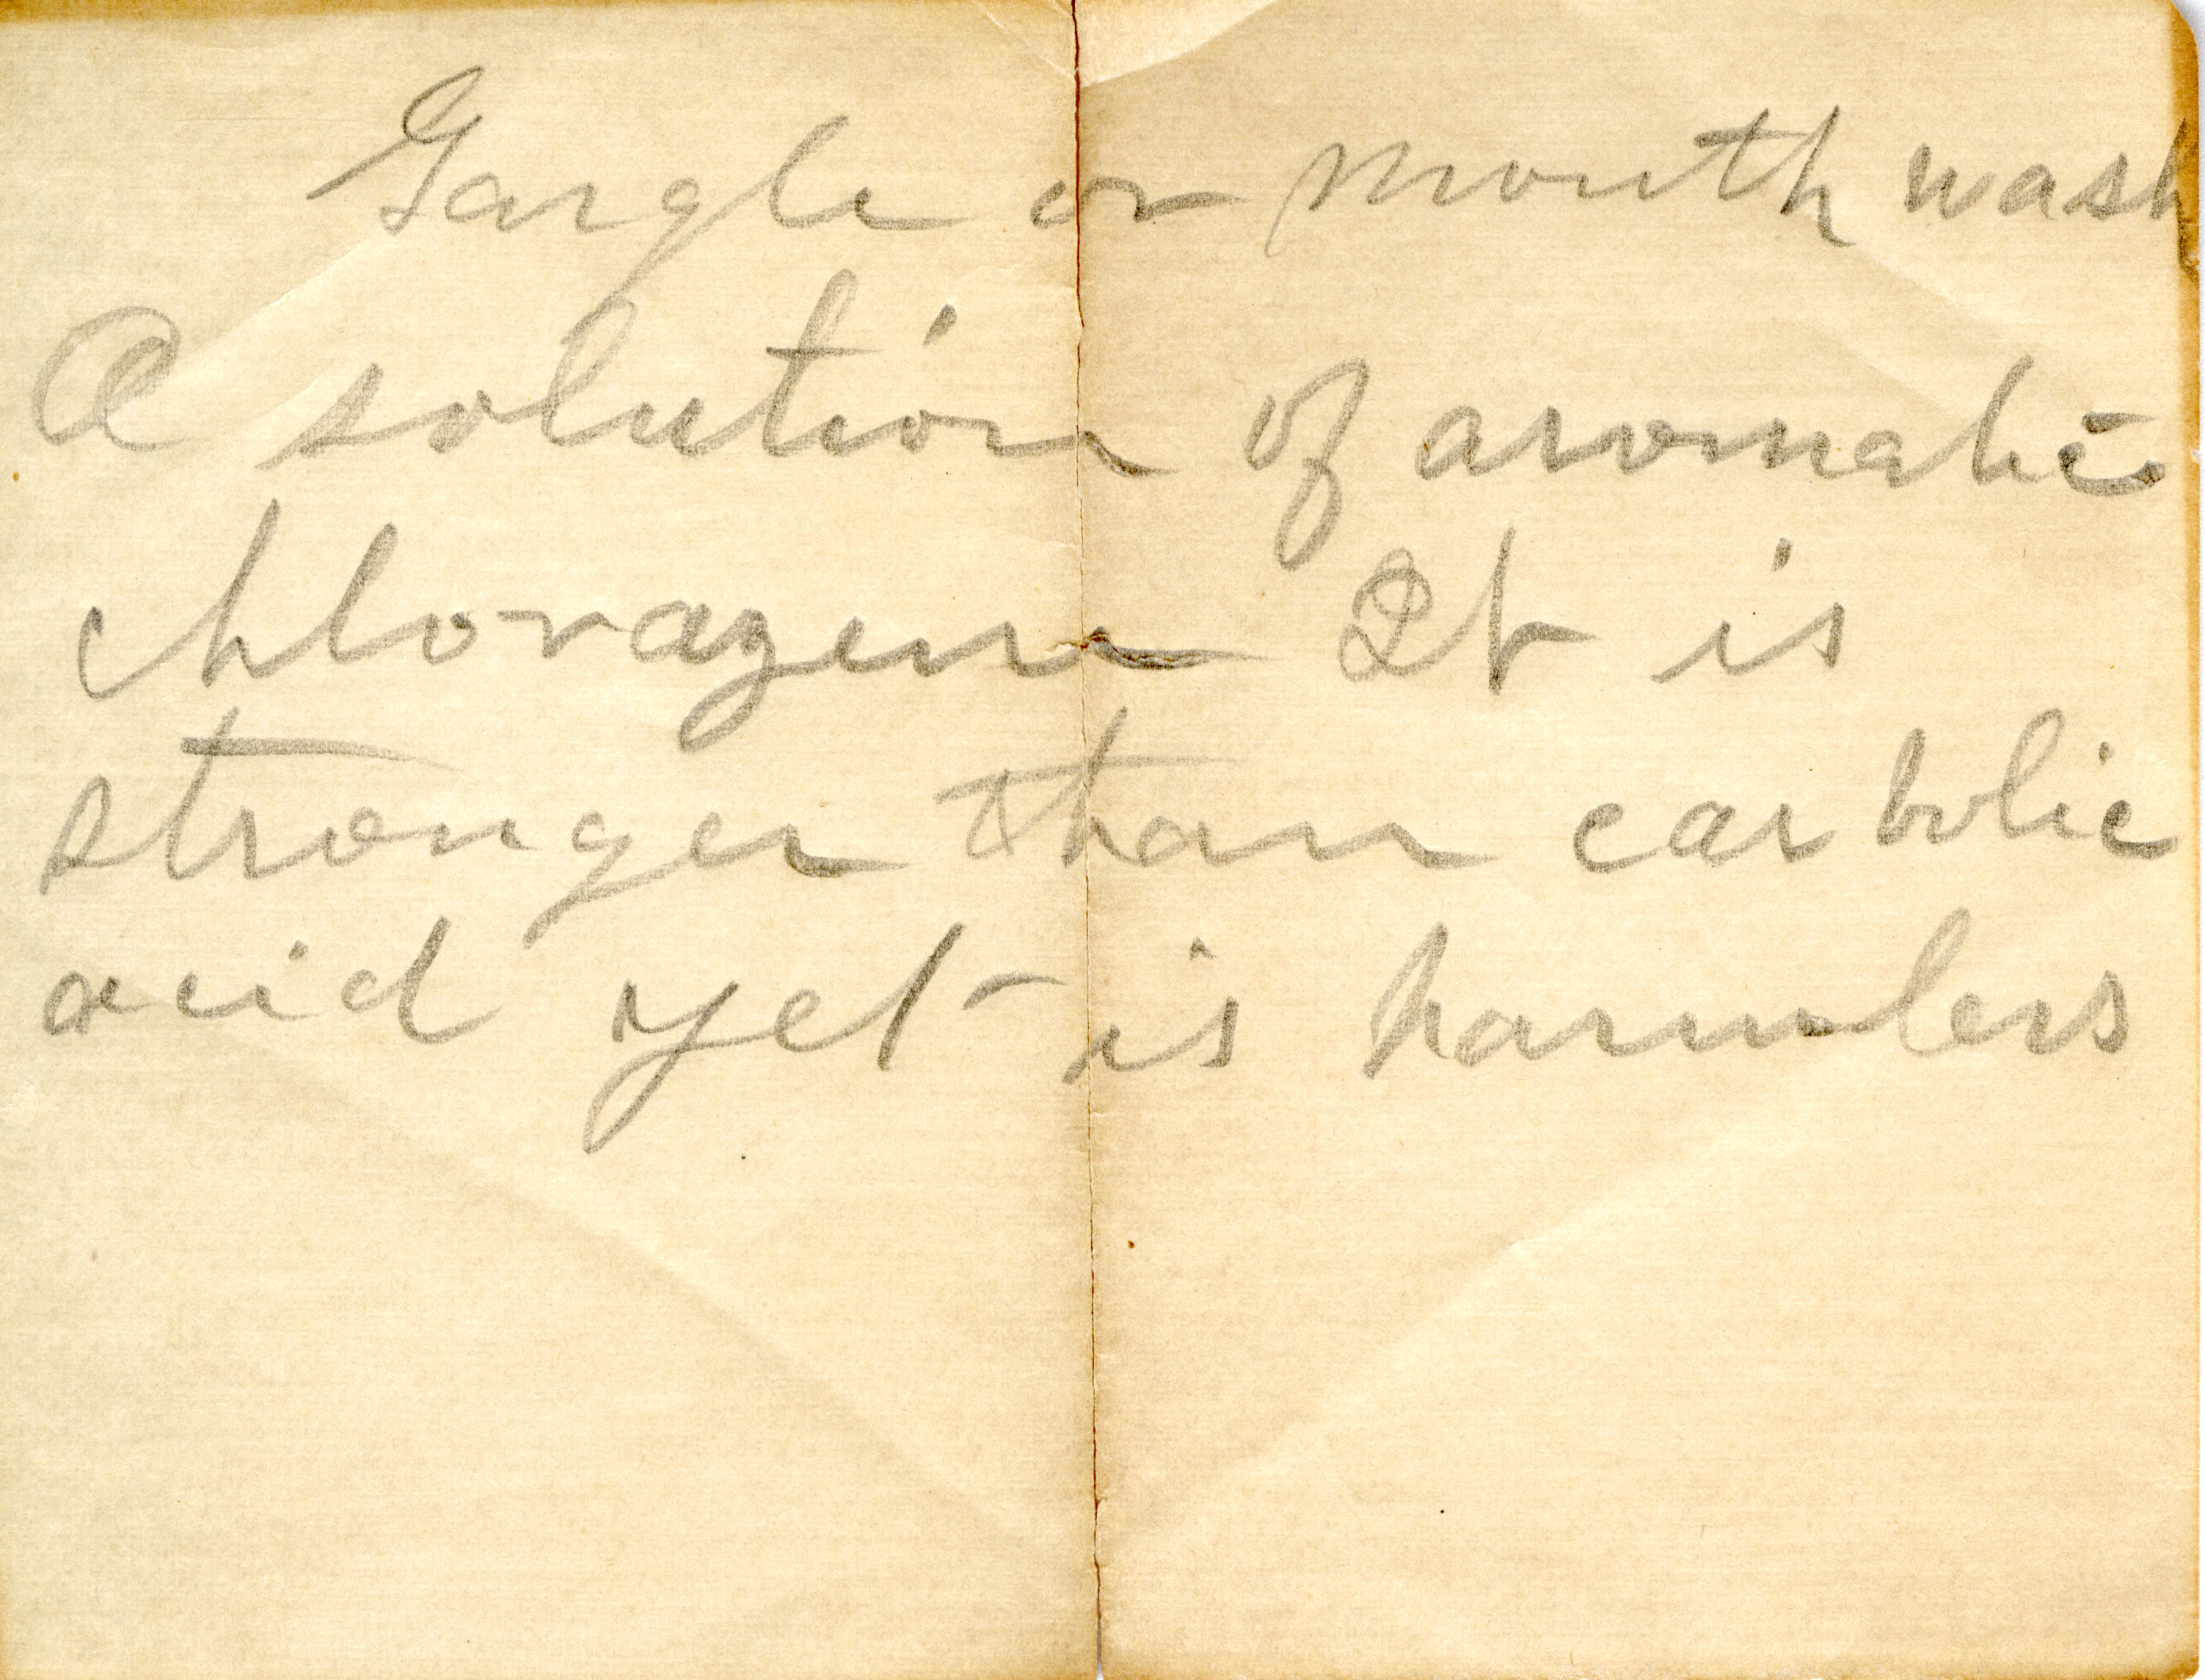 Gargle or mouth wash
A solution of aromatic
chlorazene It is
stronger than carbolic
acid yet is harmless